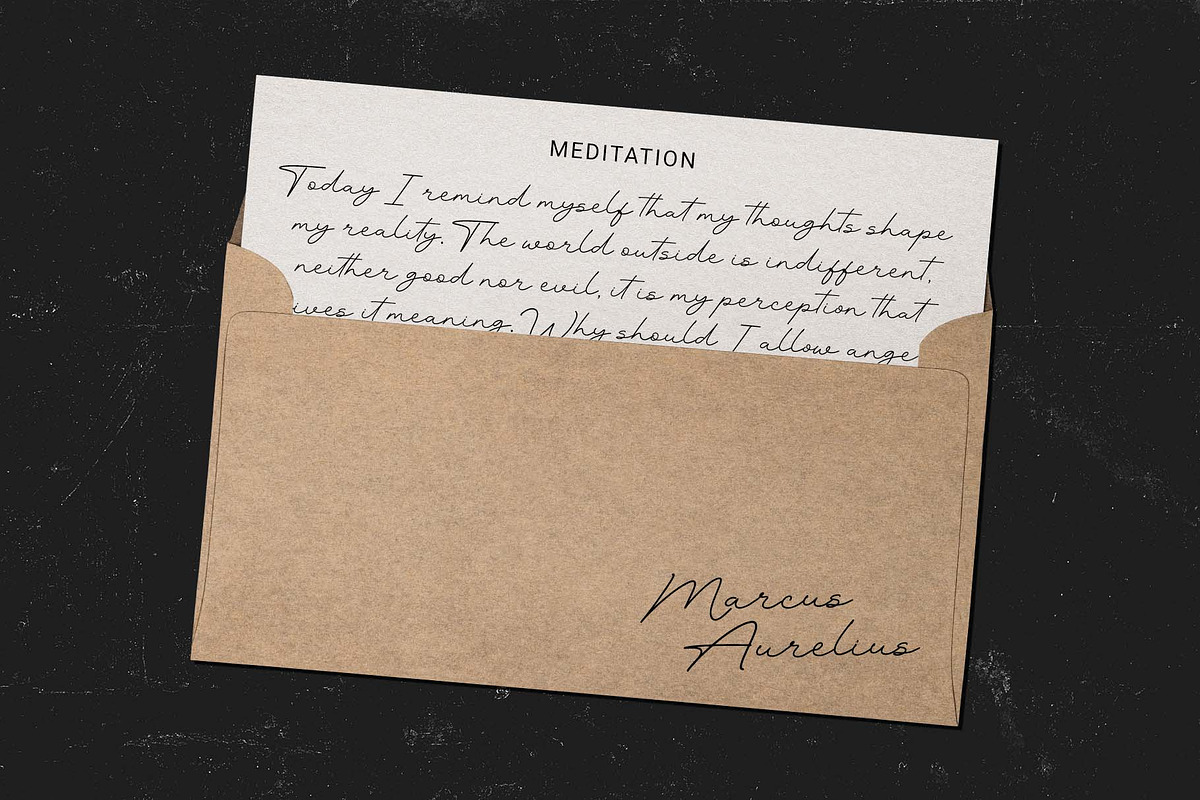 MEDITATION
Today I remind myself that my thoughts shape
my reality. The world outside is indifferent,
neither good nor evil, it is my perception that
ives it meaning. Why should I allow ange
Marcus
Aurelius